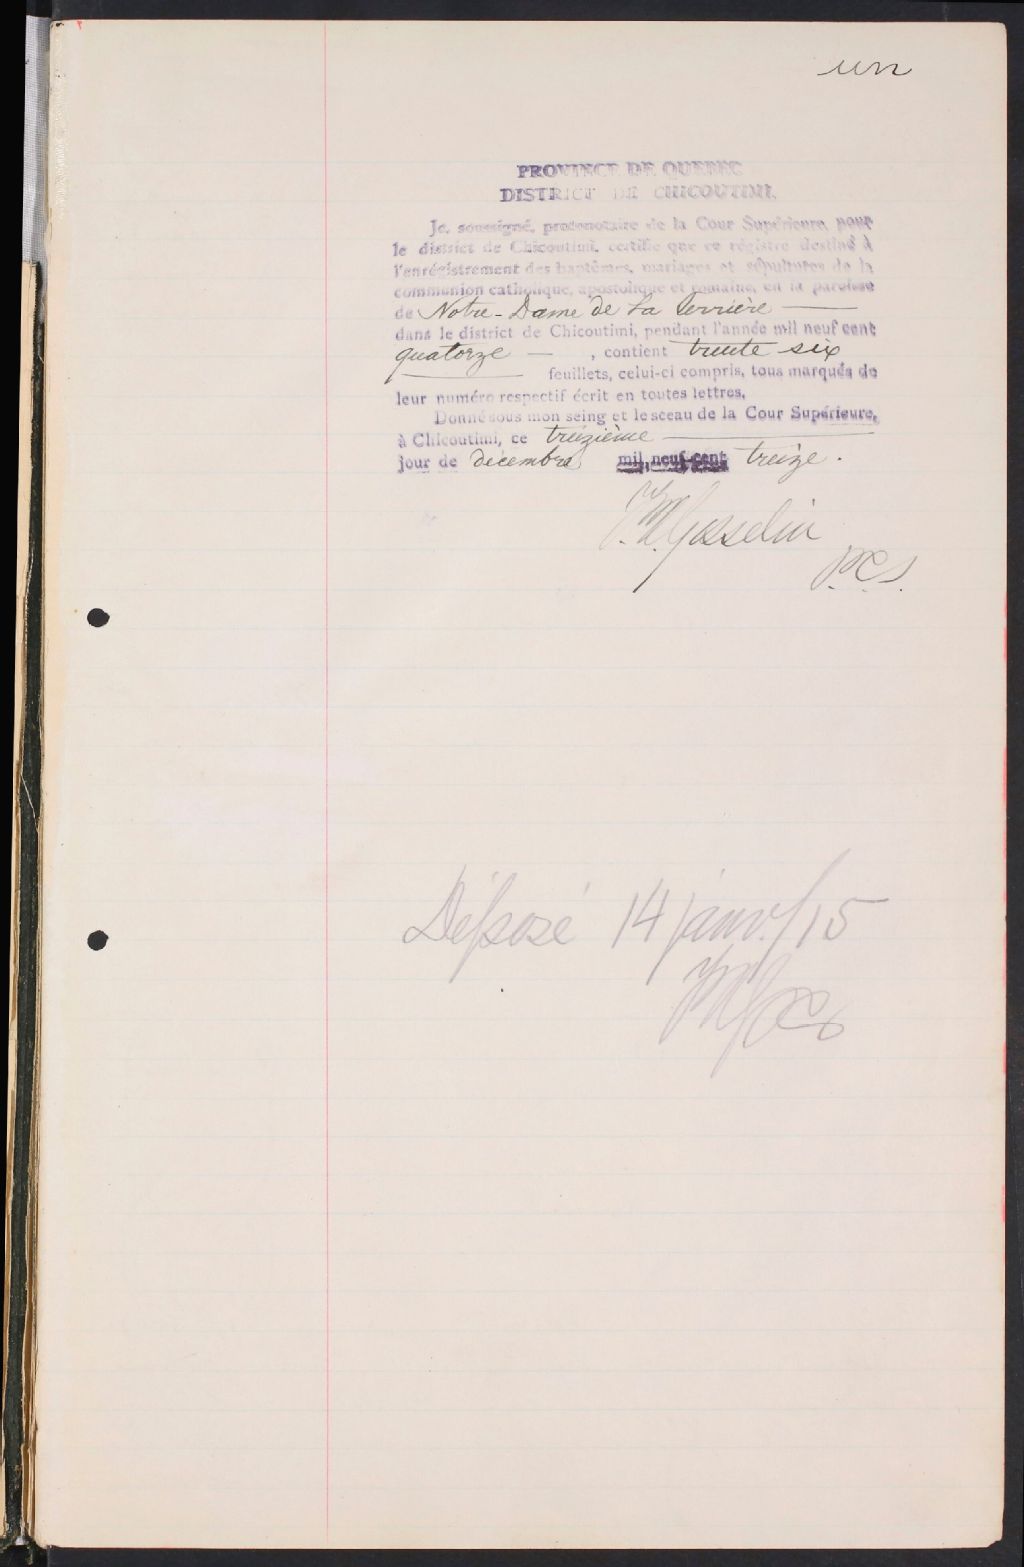 un
PROVINCE DE QUEBEC
DISTRICT DE CHICOUTIMI.
Je, soussigné, protonotaire de la Cour Supérieure, pour
le district de Chicoutimi, certifie que ce régistre destiné à
l'enrégistrement des baptêmes, mariages et sépultures de la
communion catholique, apostolique et romaine, en la paroisse
de Notre-Dame de La Terrière
dans le district de Chicoutimi, pendant l'année mil neuf cent
quatorze — , contient trente six
feuillets, celui-ci compris, tous marqués de
leur numéro respectif écrit en toutes lettres.
Donné sous mon seing et le sceau de la Cour Supérieure,
à Chicoutimi, ce treizième
jour de décembre mil neuf cent treize.
Gosselin
P.C.S.
Déposé 14 janv./15